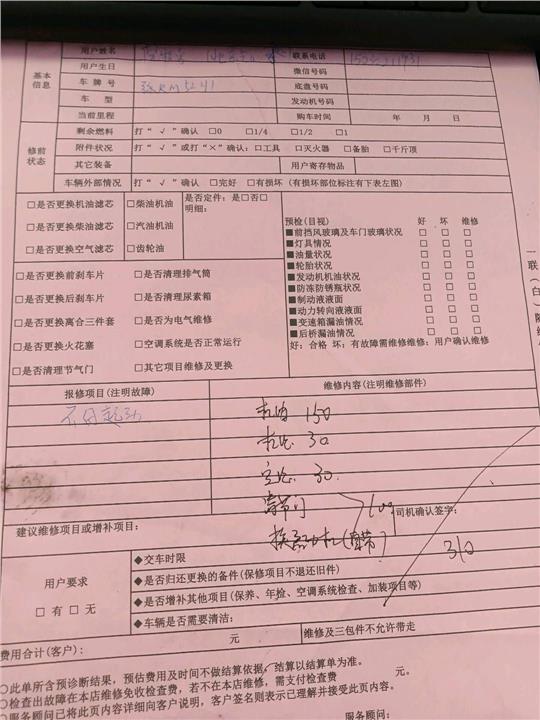 用户姓名 联系电话
用户生日 微信号码
基本信息 车牌号 底盘号码
车型 发动机号码
当前里程 购车时间 年 月 日
修前状态 剩余燃料 打“√”确认 □0 □1/4 □1/2 □1
附件状况 打“√”或打“×”确认：□工具 □灭火器 □备胎 □千斤顶
其它装备 用户寄存物品
车辆外部情况 打“√”确认 □完好 □有损坏（有损坏部位标注有下表左图）
□是否更换机油滤芯 □柴油机油 是否定件：是□否□
明细：
□是否更换柴油滤芯 □汽油机油
□是否更换空气滤芯 □齿轮油
预检（目视） 好 坏 维修
■前挡风玻璃及车门玻璃状况 □ □ □
■灯具情况 □ □ □
■油量状况 □ □ □
■轮胎状况 □ □ □
■发动机机油状况 □ □ □
■防冻防锈瓶状况 □ □ □
■制动液液面 □ □ □
■动力转向液液面 □ □ □
■变速箱漏油情况 □ □ □
■后桥漏油情况 □ □ □
好：合格 坏：有故障需维修维修：用户确认维修
□是否更换前刹车片 □是否清理排气筒
□是否更换后刹车片 □是否清理尿素箱
□是否更换离合三件套 □是否为电气维修
□是否更换火花塞 □空调系统是否正常运行
□是否清理节气门 □其它项目维修及更换
报修项目（注明故障） 维修内容（注明维修部件）
不好起动 机油 150
机芯 30
空芯 30
节门 100
换启动机（自带）
司机确认签字：
310
建议维修项目或增补项目：
用户要求
□有 □无
◆交车时限
◆是否归还更换的备件（保修项目不退还旧件）
◆是否增补其他项目（保养、年检、空调系统检查、加装项目等）
◆车辆是否需要清洁：
费用合计（客户）： 元 维修及三包件不允许带走
○此单所含预诊断结果，预估费用及时间不做结算依据，结算以结算单为准。
○检查出故障在本店维修免收检查费，若不在本店维修，需支付检查费 元。
○服务顾问已将此页内容详细向客户说明，客户签名则表示已理解并接受此页内容。
服务顾问：
一
联
（
白